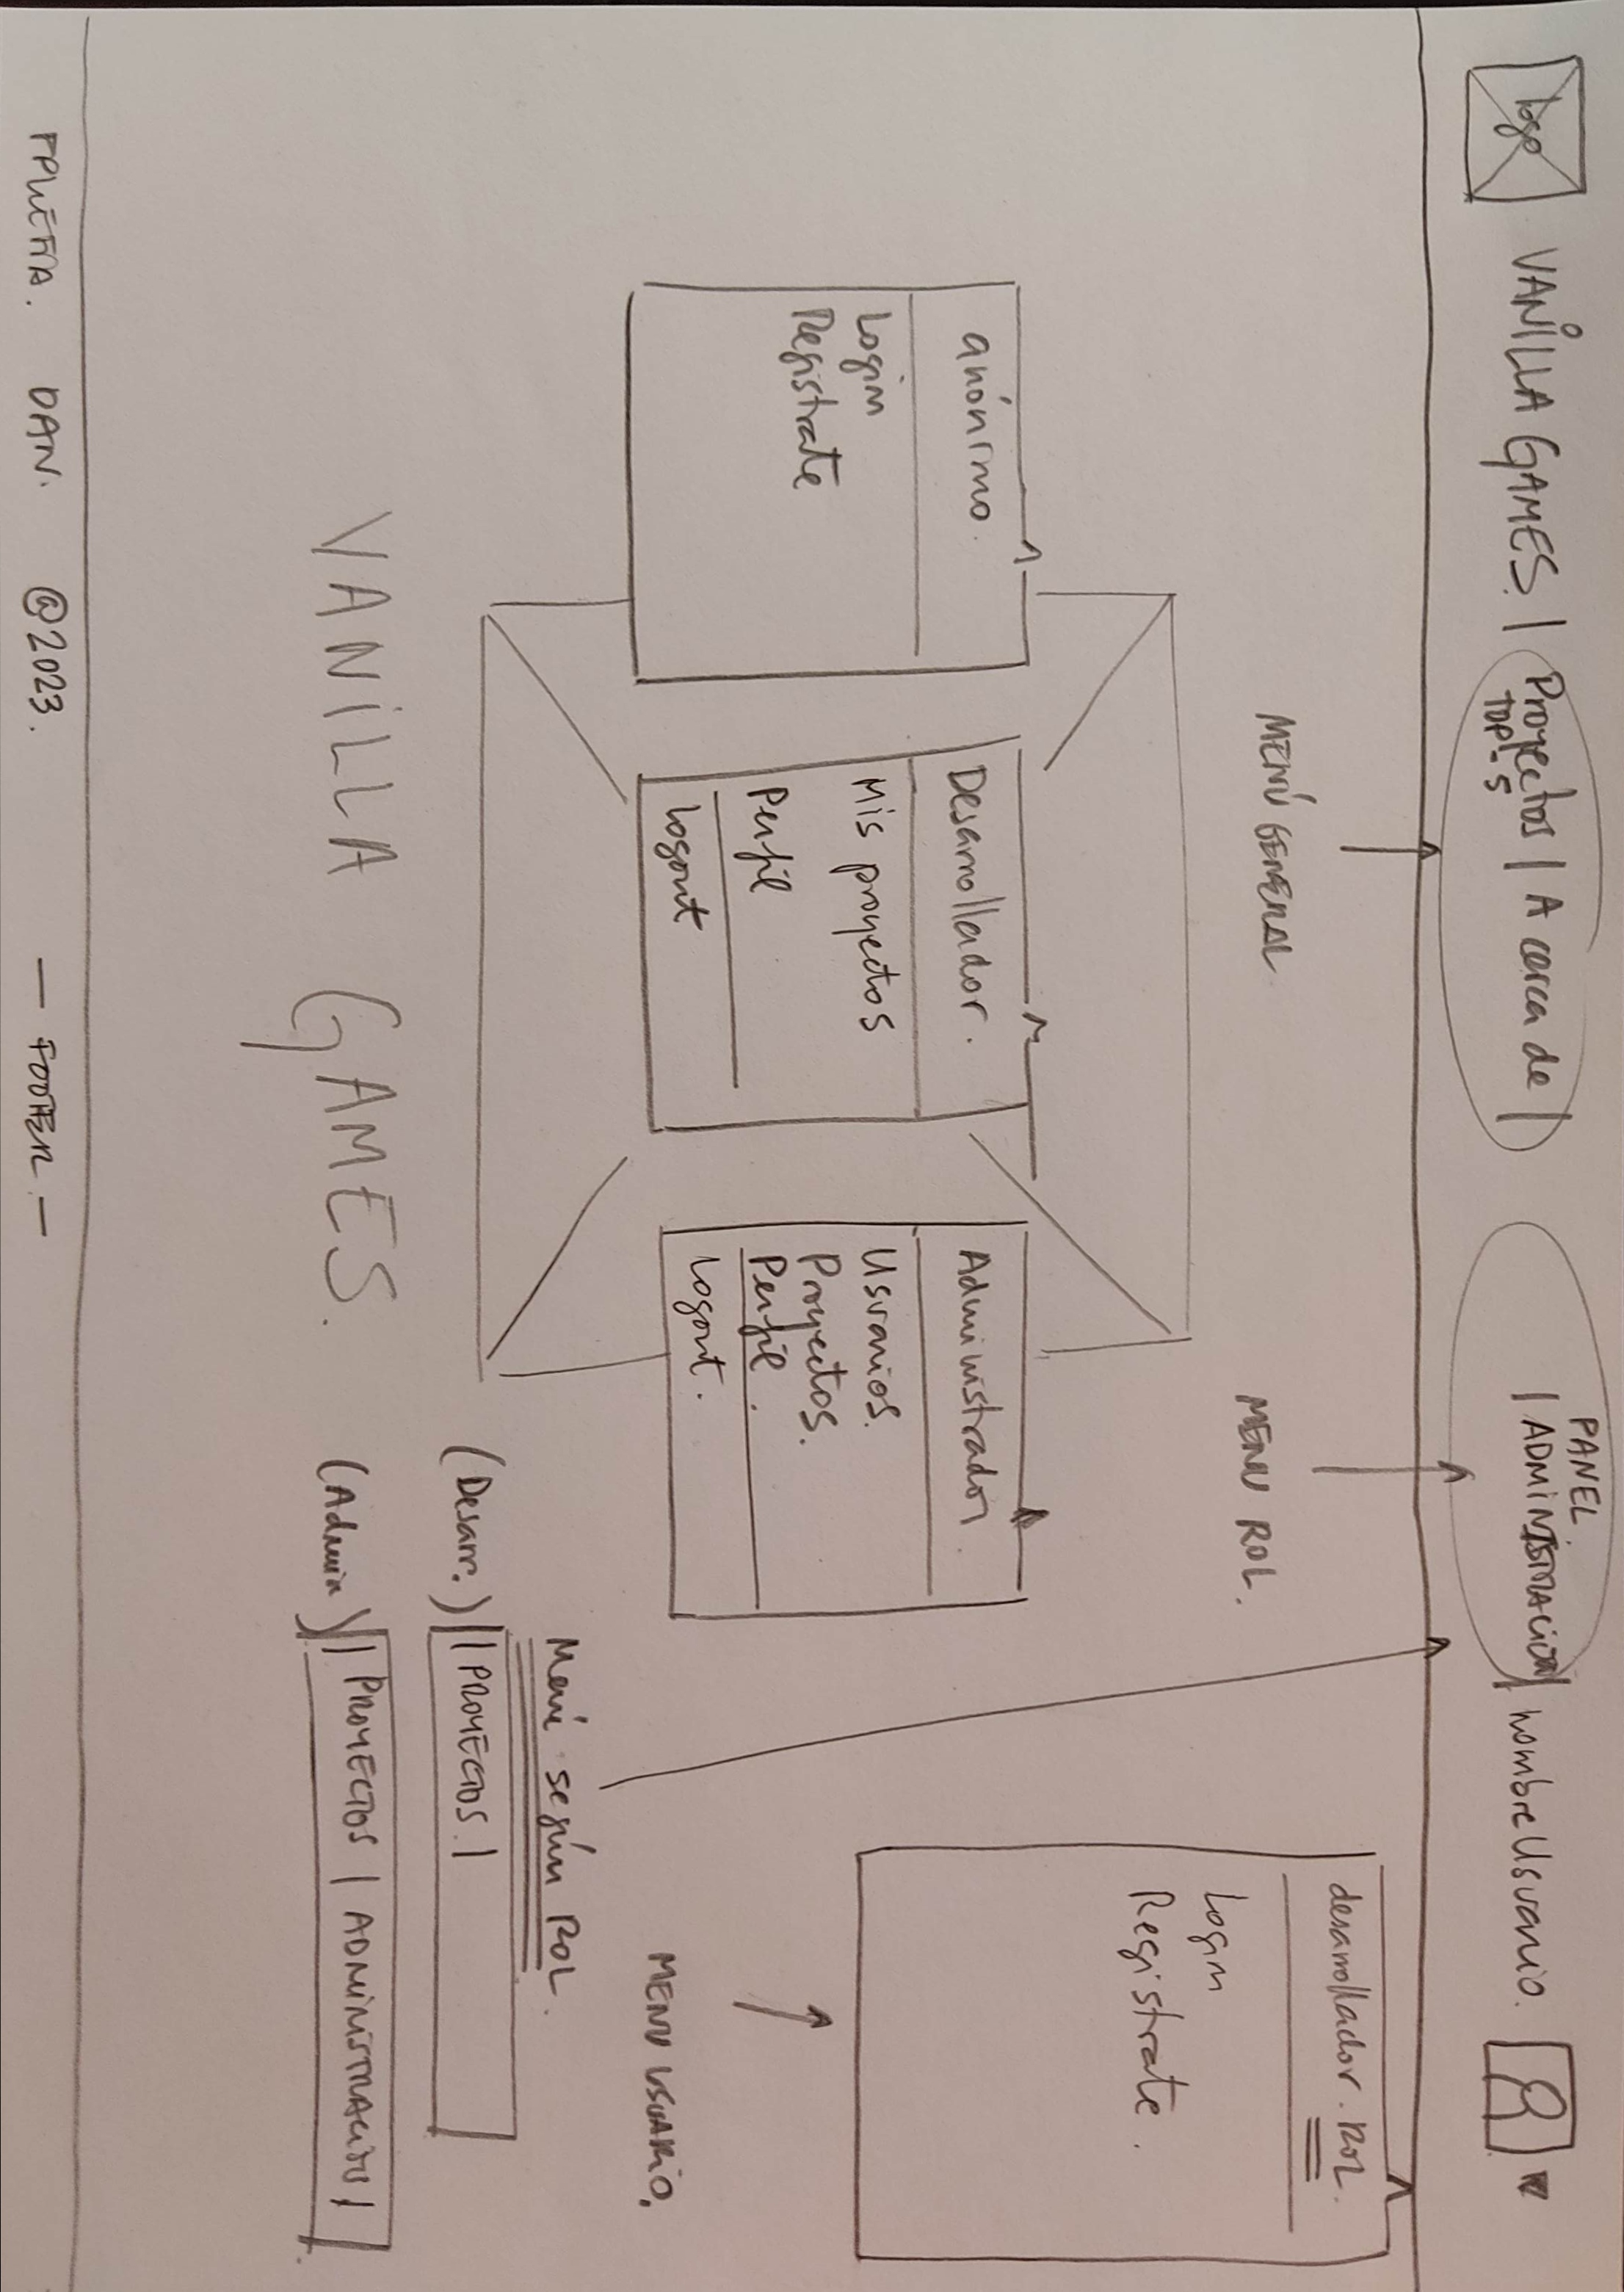 logo
VANILLA GAMES. | Proyectos | A cerca de |
TOP-5
PANEL.
| ADMINISTRACIÓN | nombreUsuario.
MENÚ GENERAL
MENU ROL.
desarrollador. ROL.
Login
Registrate.
anónimo.
Login
Registrate
Desarrollador.
Mis proyectos
Perfil
Logout
Administrador.
Usuarios.
Proyectos.
Perfil.
Logout.
MENU USUARIO.
Menú según ROL.
(Desarr.) | PROYECTOS. |
(Admin) | PROYECTOS | ADMINISTRACIÓN |
VANILLA GAMES.
DAN. @2023. — FOOTER. —